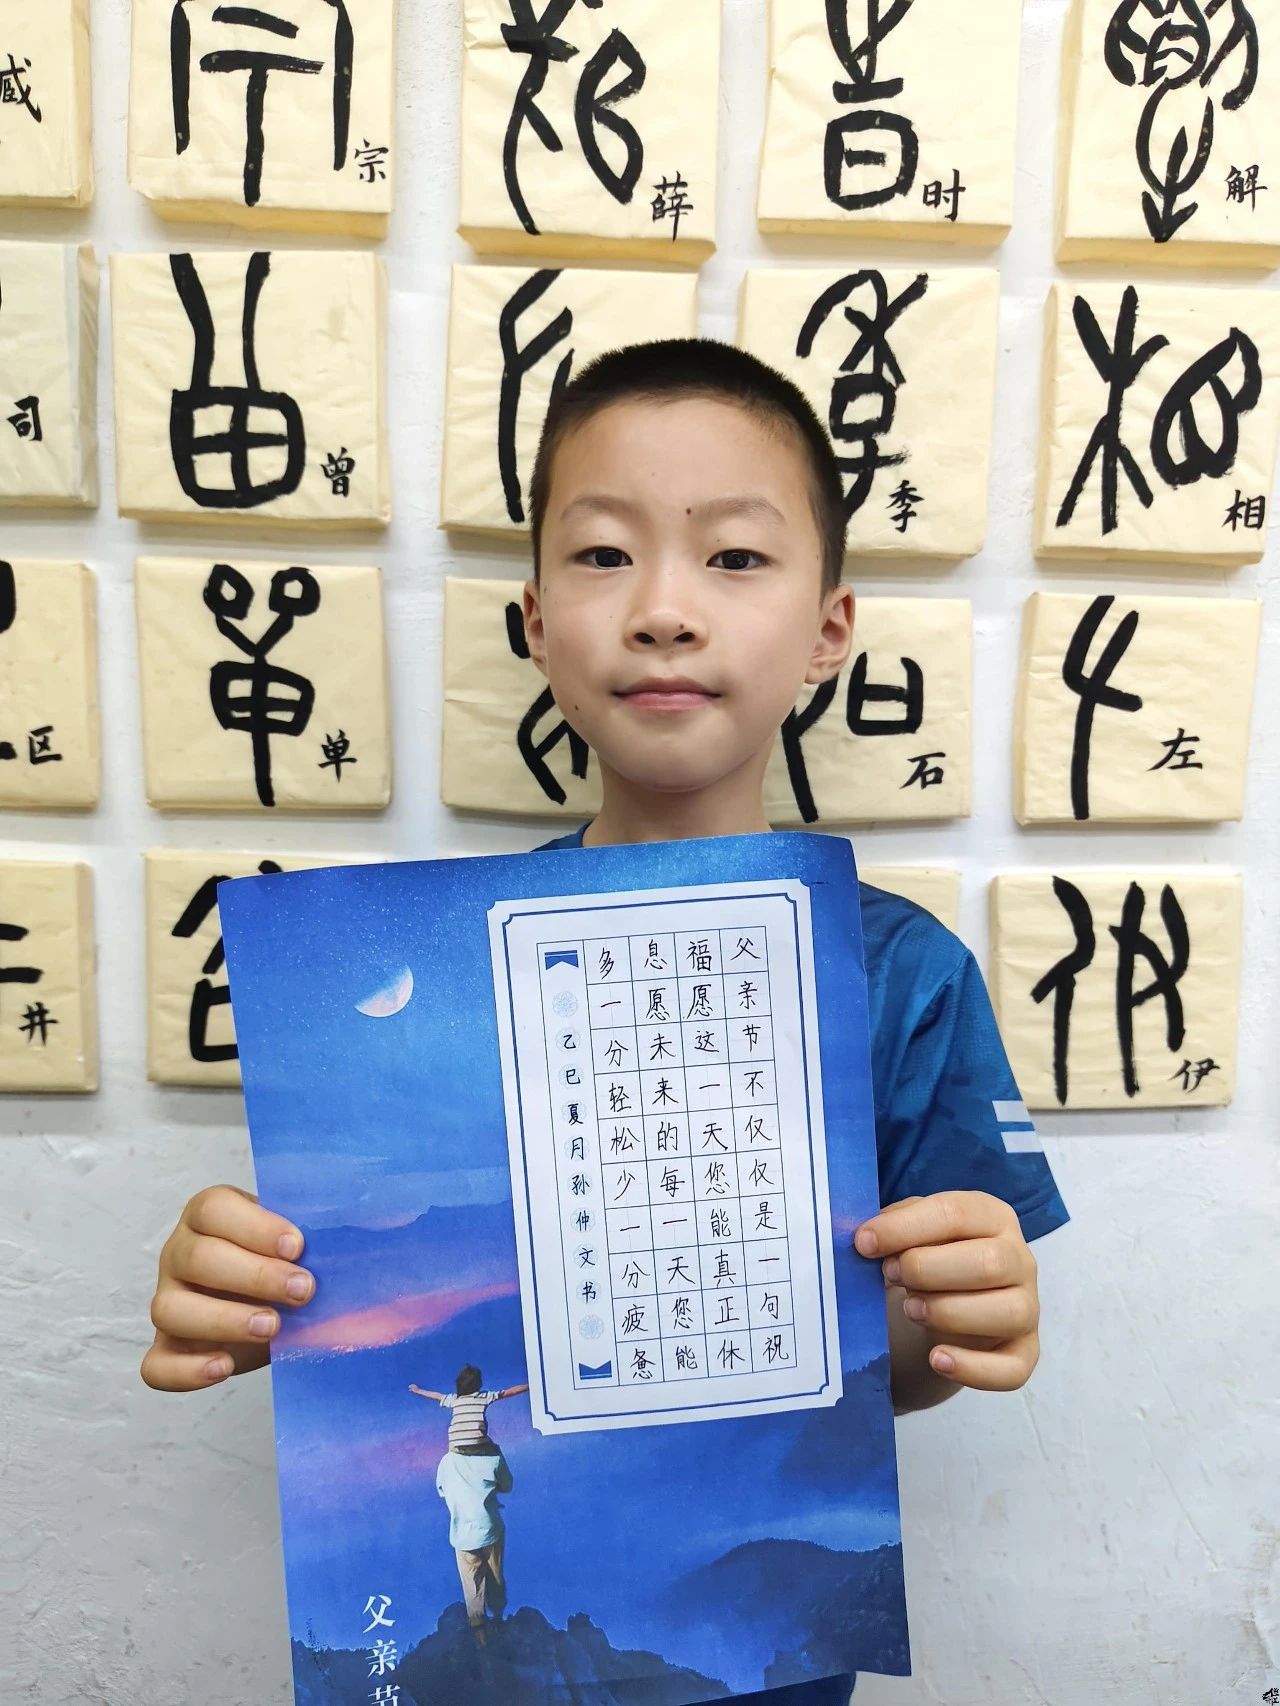 宗
薛
时
解
司
曾
季
相
区
单
石
左
井
伊
父亲节不仅仅是一句祝
福愿这一天您能真正休
息愿未来的每一天您能
多一分轻松少一分疲惫
乙巳夏月孙仲文书
父亲节